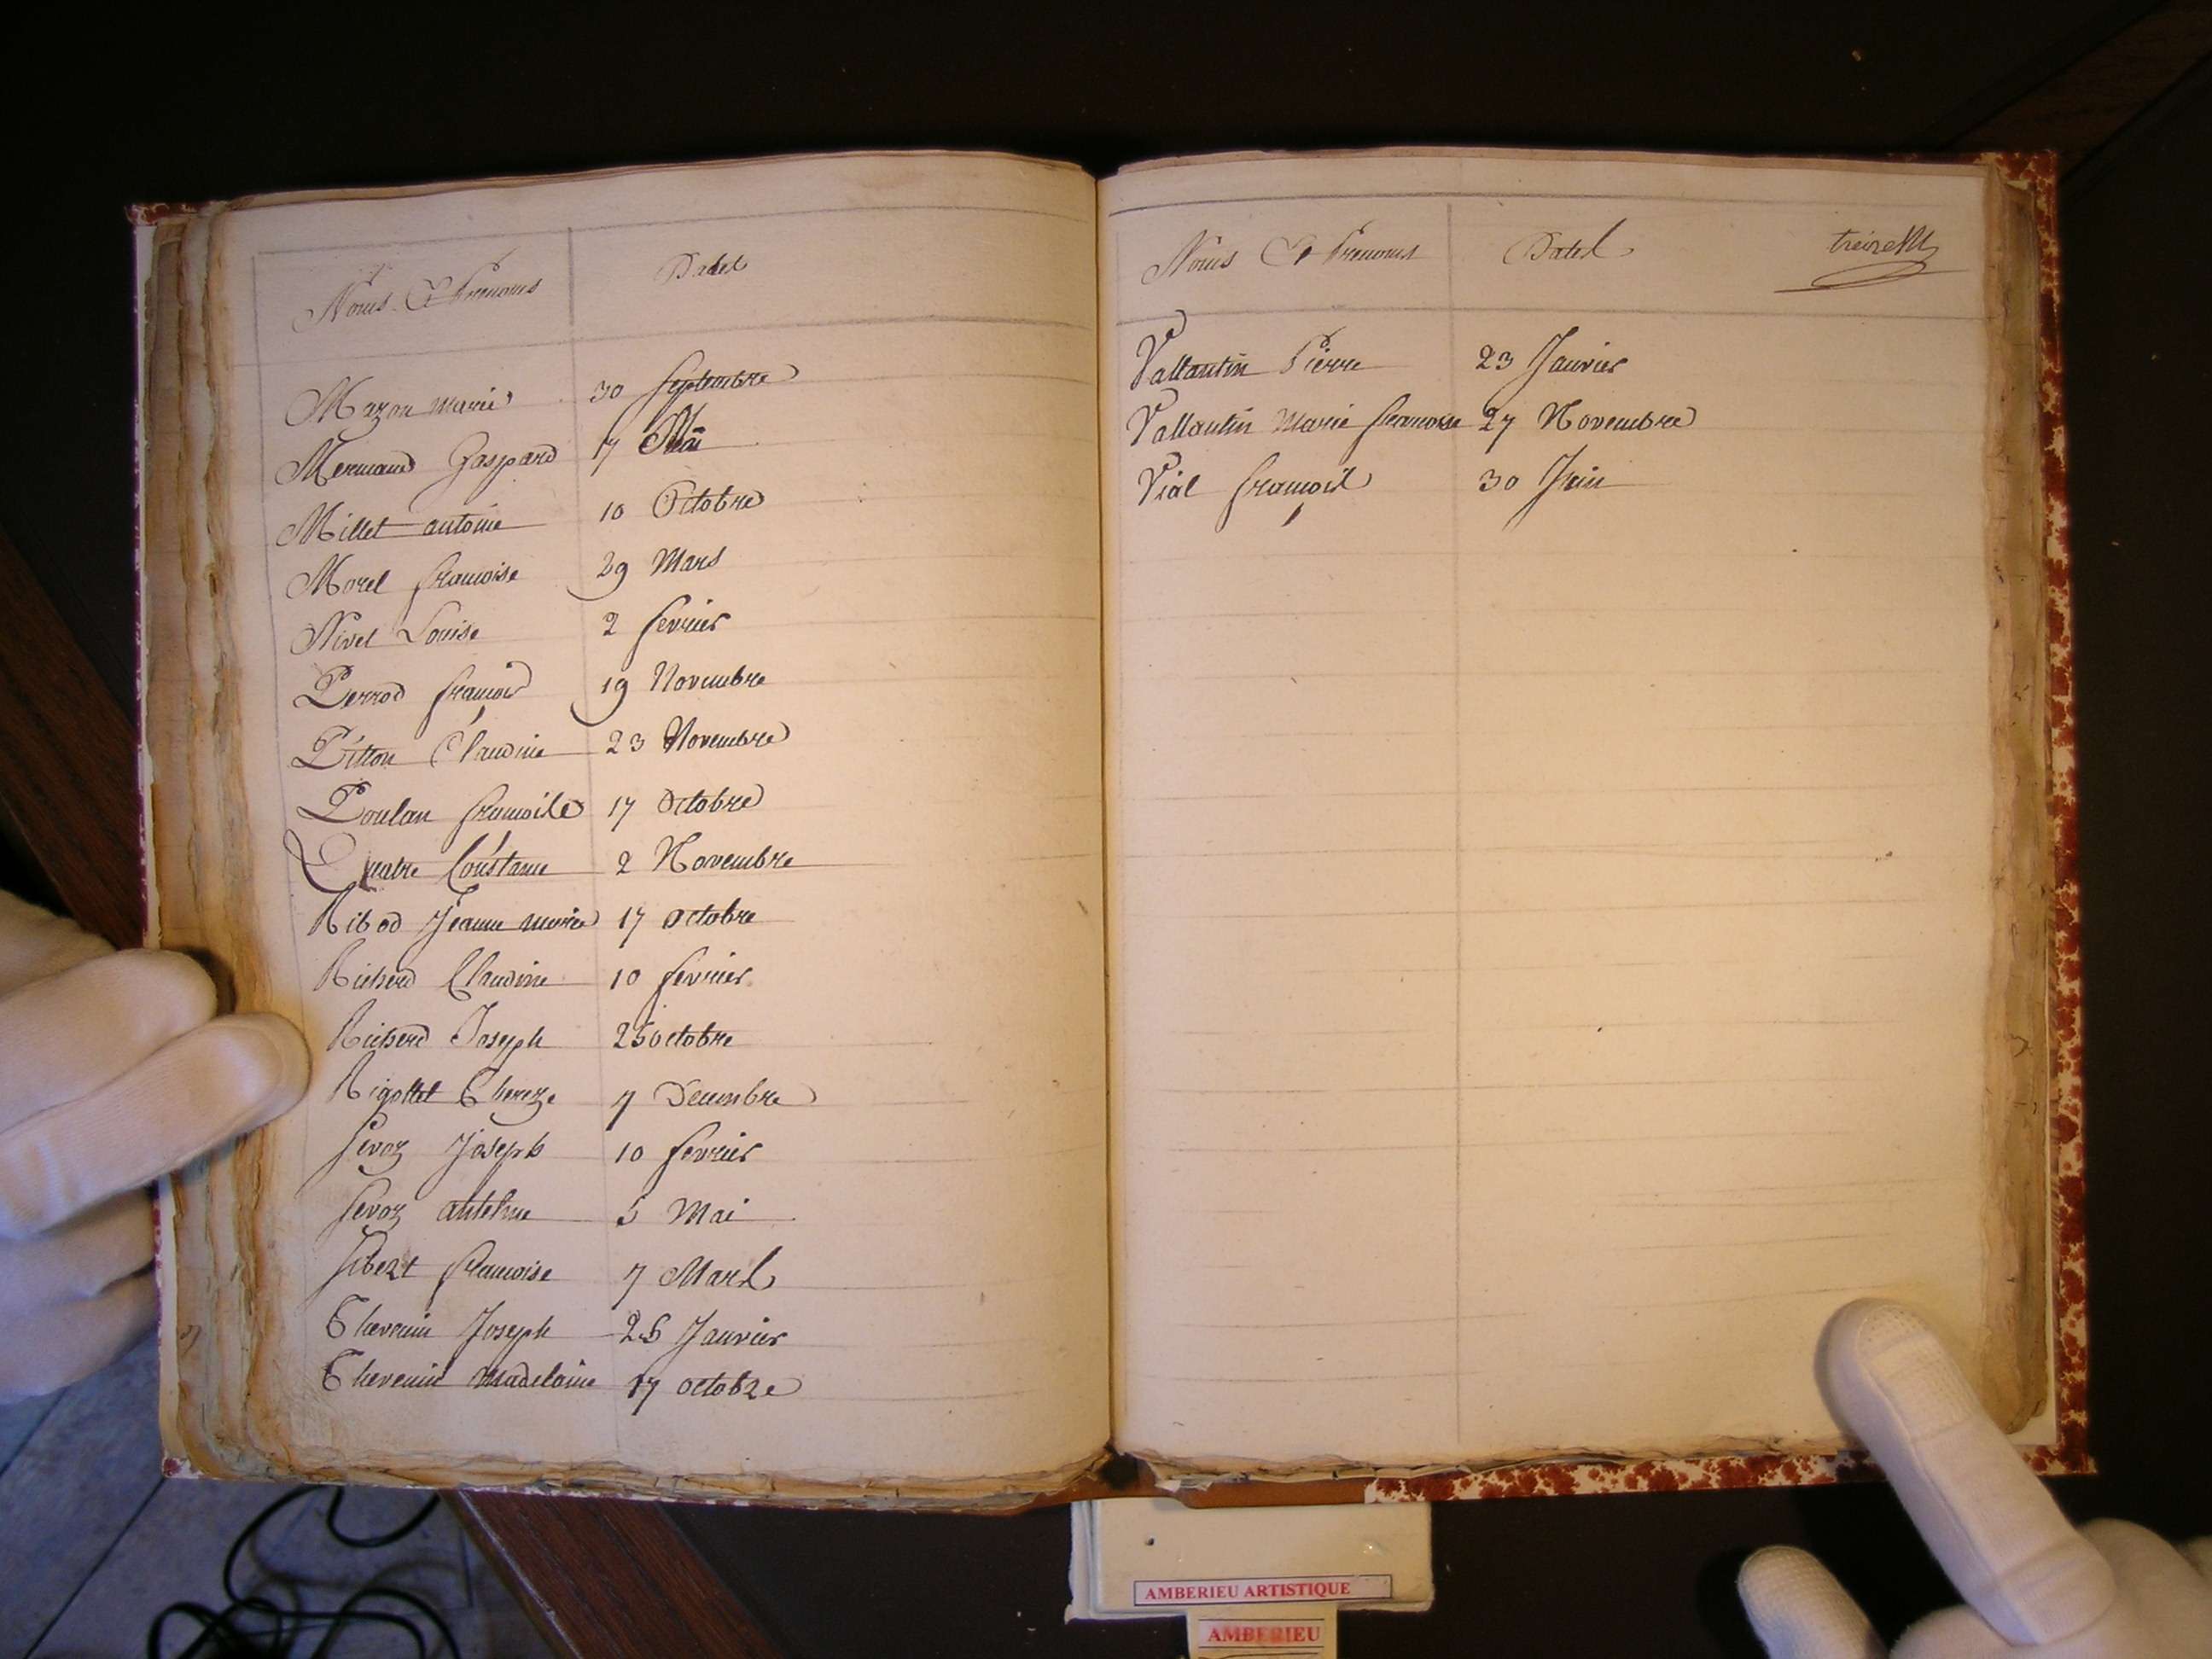 Noms Et Prenoms Dates
Mazon marie 30 Septembre
Mermand Gaspard 17 Mai
Millet antoine 10 Octobre
Morel francoise 29 Mars
Nivet Louise 2 fevrier
Perrod françois 19 Novembre
Pitton Claudine 23 Novembre
Poulan francoise 17 Octobre
Quatre Constance 2 Novembre
Ribod Jeanne marie 17 octobre
Richerd Claudine 10 fevrier
Richerd Joseph 25 octobre
Rigottet Thereze 7 Decembre
Sevoz Joseph 10 fevrier
Sevoz antelme 5 Mai
Sibert francoise 7 Mars
Thevenin Joseph 26 Janvier
Thevenin Madelaine 17 octobre
Noms Et Prenoms Dates
Vallantin Pierre 23 Janvier
Vallantin Marie francoise 27 Novembre
Vial françois 30 Juin
AMBERIEU ARTISTIQUE
AMBERIEU